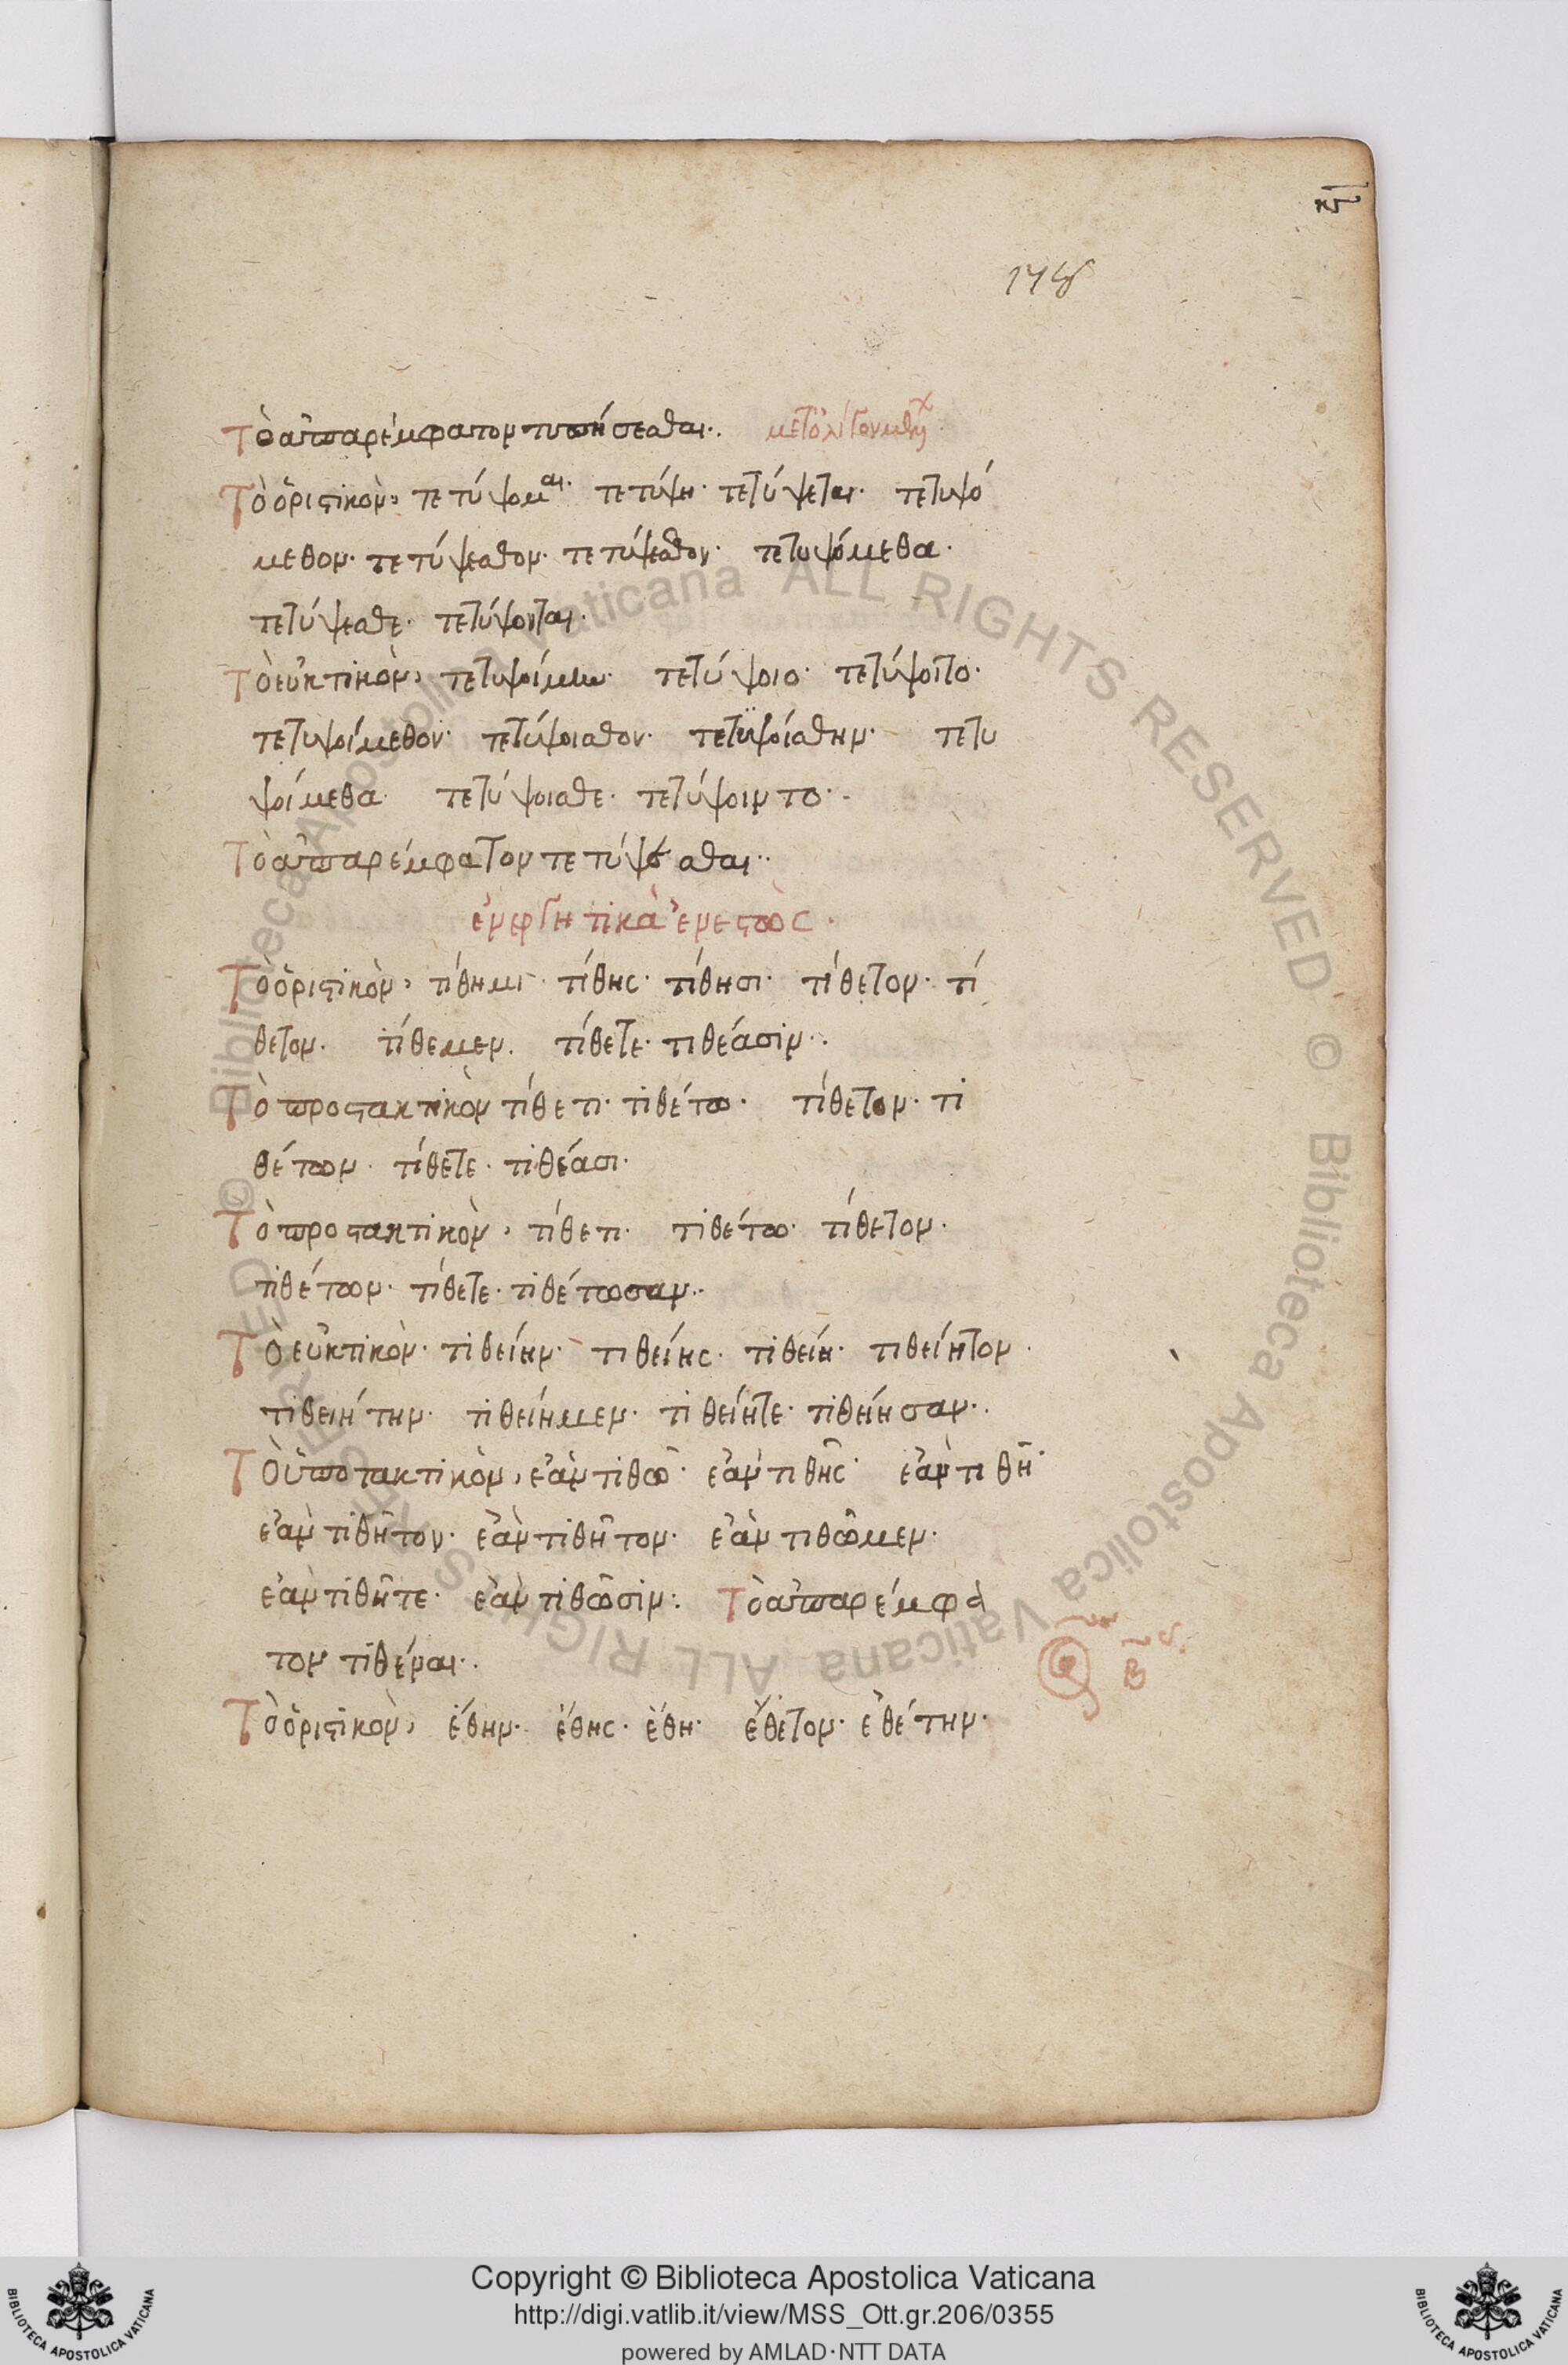 178
Τὸ ἀπαρέμφατον τυπήσεσθαι· μετολίγον μέλλων
Τὸ ὁριστικὸν, τετύψομαι· τετύψη· τετύψεται· τετυψό
μεθον· τετύψεσθον· τετύψεσθον· τετυψόμεθα·
τετύψεσθε· τετύψονται·
Τὸ εὐκτικὸν, τετυψοίμην· τετύψοιο· τετύψοιτο·
τετυψοίμεθον· τετύψοισθον· τετυψοίσθην· τετυ
ψοίμεθα· τετύψοισθε· τετύψοιντο·
Τὸ ἀπαρέμφατον τετύψεσθαι··
ἐνεργητικὰ ἐνεστὼς·
Τὸ ὁριστικὸν, τίθημι· τίθης· τίθησι· τίθετον· τί
θετον· τίθεμεν· τίθετε· τιθέασιν·.
Τὸ προστακτικὸν τίθετι· τιθέτω· τίθετον· τι
θέτων· τίθετε· τιθέασι·
Τὸ προστακτικὸν, τίθετι· τιθέτω· τίθετον·
τιθέτων· τίθετε· τιθέτωσαν·.
Τὸ εὐκτικὸν· τιθείην· τιθείης· τιθείη· τιθείητον·
τιθειήτην· τιθείημεν· τιθείητε· τιθείησαν·.
Τὸ ὑποτακτικὸν, ἐὰν τιθῶ· ἐὰν τιθῆς· ἐὰν τιθῆ·
ἐὰν τιθῆτον· ἐὰν τιθῆτον· ἐὰν τιθῶμεν·
ἐὰν τιθῆτε· ἐὰν τιθῶσιν:. Τὸ ἀπαρέμφα
τον τιθέναι·.
Τὸ ὁριστικὸν, ἔθην· ἔθης· ἔθη· ἔθετον· ἐθέτην·
Biblioteca Apostolica Vaticana ALL RIGHTS RESERVED © Biblioteca Apostolica Vaticana ALL RIGHTS RESERVED ©
Copyright © Biblioteca Apostolica Vaticana
http://digi.vatlib.it/view/MSS_Ott.gr.206/0355
powered by AMLAD·NTT DATA
BIBLIOTECA APOSTOLICA VATICANA
BIBLIOTECA APOSTOLICA VATICANA